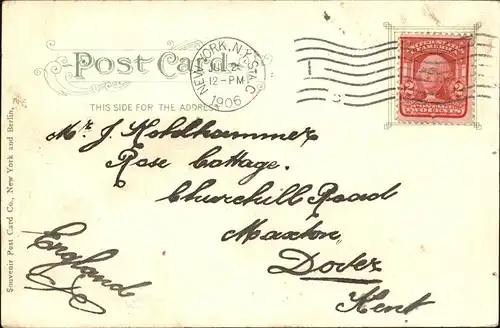 Post Card
THIS SIDE FOR THE ADDRESS
NEW YORK, N.Y. STA. C
12-PM
1906
UNITED STATES OF AMERICA
2 2
POSTAGE
TWO CENTS
Mr J. Holdhammer
Rose Cottage.
Churchill Road
Maxton,
Dover
Kent
England
Souvenir Post Card Co., New York and Berlin.